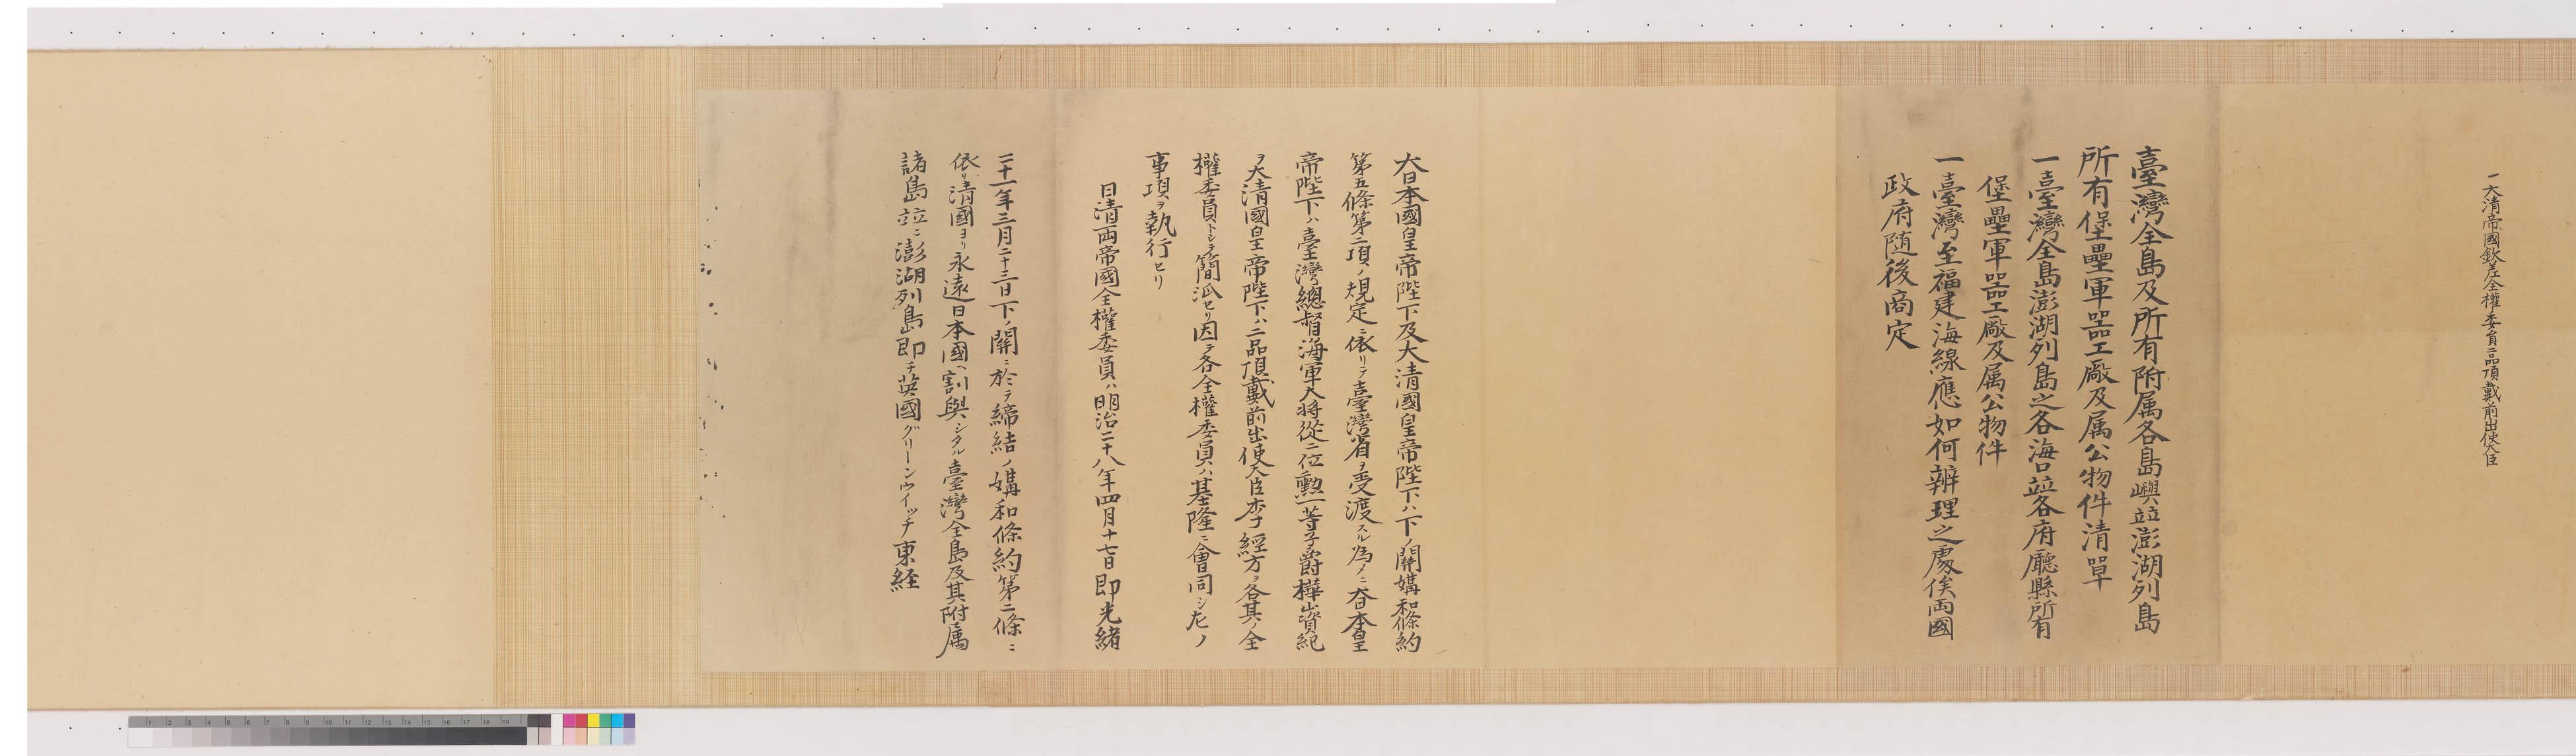 一大清帝國欽差全權委員二品頂戴前出使大臣
臺灣全島及所有附属各島嶼竝澎湖列島
所有堡壘軍噐工廠及属公物件清單
一臺灣全島澎湖列島之各海口竝各府廳縣所有
堡壘軍噐工廠及属公物件
一臺灣至福建海線應如何辨理之處俟両國
政府随後商定
大日本國皇帝陛下及大清國皇帝陛下ハ下ノ關媾和條約
第五條第二項ノ規定ニ依リテ臺灣省ヲ受渡スル為メニ大日本皇
帝陛下ハ臺灣總督海軍大将從二位勲一等子爵樺山資紀
ヲ大清國皇帝陛下ハ二品頂戴前出使大臣李經方ヲ各其ノ全
權委員トシテ簡派セリ因テ各全權委員ハ基隆ニ會同シ左ノ
事項ヲ執行セリ
日清両帝國全權委員ハ明治二十八年四月十七日即光緒
二十一年三月二十三日下ノ關ニ於テ締結ノ媾和條約第二條ニ
依リ清國ヨリ永遠日本國ヘ割與シタル臺灣全島及其附属
諸島竝ニ澎湖列島即チ英國グリーンウイッチ東経